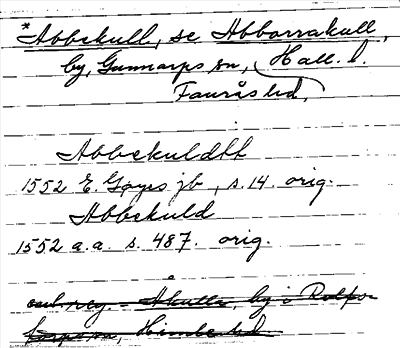 *Abbekull, se Abborrakull,
by, Gunnarps sn, Hall. l.
Fauråshd.
Abbekuldth
1552 E. Gøyes jb, s. 14. orig.
Abbekuld
1552 a.a. s. 487. orig.
enl. reg. - Akulla, by i Rolfs-
torps sn, Himle hd.